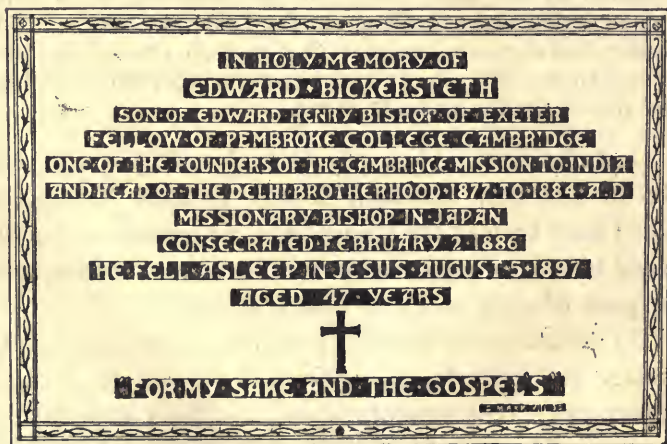 IN HOLY MEMORY OF
EDWARD · BICKERSTETH
SON OF EDWARD HENRY BISHOP OF EXETER
FELLOW OF PEMBROKE COLLEGE CAMBRIDGE
ONE·OF·THE·FOUNDERS·OF·THE·CAMBRIDGE·MISSION·TO·INDIA
AND·HEAD·OF·THE·DELHI·BROTHERHOOD·1877·TO·1884·A·D
MISSIONARY·BISHOP·IN·JAPAN
CONSECRATED·FEBRUARY·2·1886
HE·FELL·ASLEEP·IN·JESUS·AUGUST·5·1897
AGED · 47 · YEARS
"FOR·MY·SAKE AND THE GOSPEL'S"